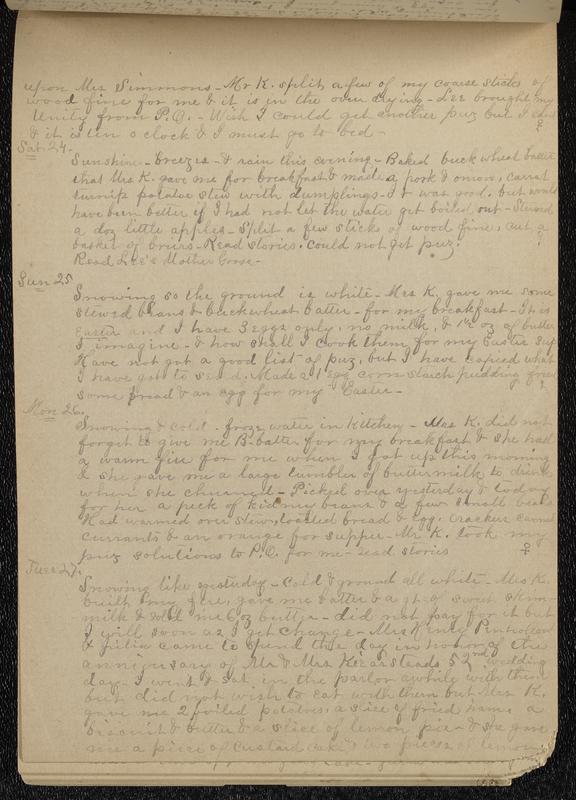 upon Mrs Simmons - Mr K. split a few of my coarse sticks of
wood fine for me & it is in the oven drying - Lee brought my
Unity from P.O. - Wish I could get another puz but I can't
& it is ten o clock & I must go to bed -
Sat. 24.
Sunshine - breezes - & rain this evening - Baked buckwheat batter
that Mrs K. gave me for breakfast & made a pork & onion, carrot
turnip potatoe stew with dumplings - It was good, but would
have been better if I had not let the water get boiled out - Stewed
a doz little apples - Split a few sticks of wood fine, cut a
basket of briars - Read stories. Could not get puz.
Read Lee's Mother Goose -
Sun 25
Snowing so the ground is white - Mrs K. gave me some
stewed beans & buckwheat batter - for my breakfast - It is
Easter and I have 3 eggs only, no milk, & 1½ oz of butter
I imagine - & how shall I cook them for my Easter sup
Have not got a good list of puz, but I have copied what
I have got to send. Made a 1 egg corn starch pudding fried
some bread & an egg for my Easter -
Mon 26.
Snowing & cold - froze water in kitchen - Mrs K. did not
forget to give me B. batter for my breakfast & she had
a warm fire for me when I got up this morning
& she gave me a large tumbler of buttermilk to drink
when she churned - Picked over yesterday & today
for her a peck of kidney beans & a few small beans
Had warmed over stew, toasted bread & egg, crackers canned
currants & an orange for supper - Mr K. took my
puz solutions to P.O. for me - read stories
Tues 27.
Snowing like yesterday - Cold & ground all white - Mrs K.
built my fire, gave me batter & a pt of sweet skim
milk & sold me 6 oz butter - did not pay for it but
I will soon as I get change - Mrs Henry
& Julia came to spend the day in honor of the
anniversary of Mr & Mrs Kierstead's 52nd wedding
day - I went & sat in the parlor awhile with them
but did not wish to eat with them but Mrs K.
gave me 2 boiled potatoes, a slice of fried ham, a
biscuit & butter & a slice of lemon pie - & she gave
me a piece of custard cake & two pieces of lemon